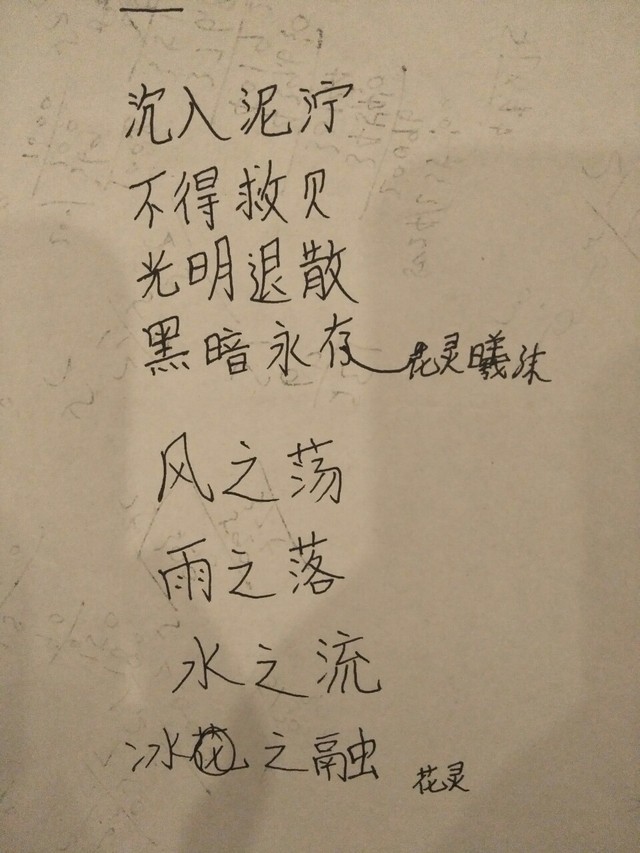 沉入泥泞
不得救贝
光明退散
黑暗永存 花灵曦沫
风之荡
雨之落
水之流
冰花之融 花灵